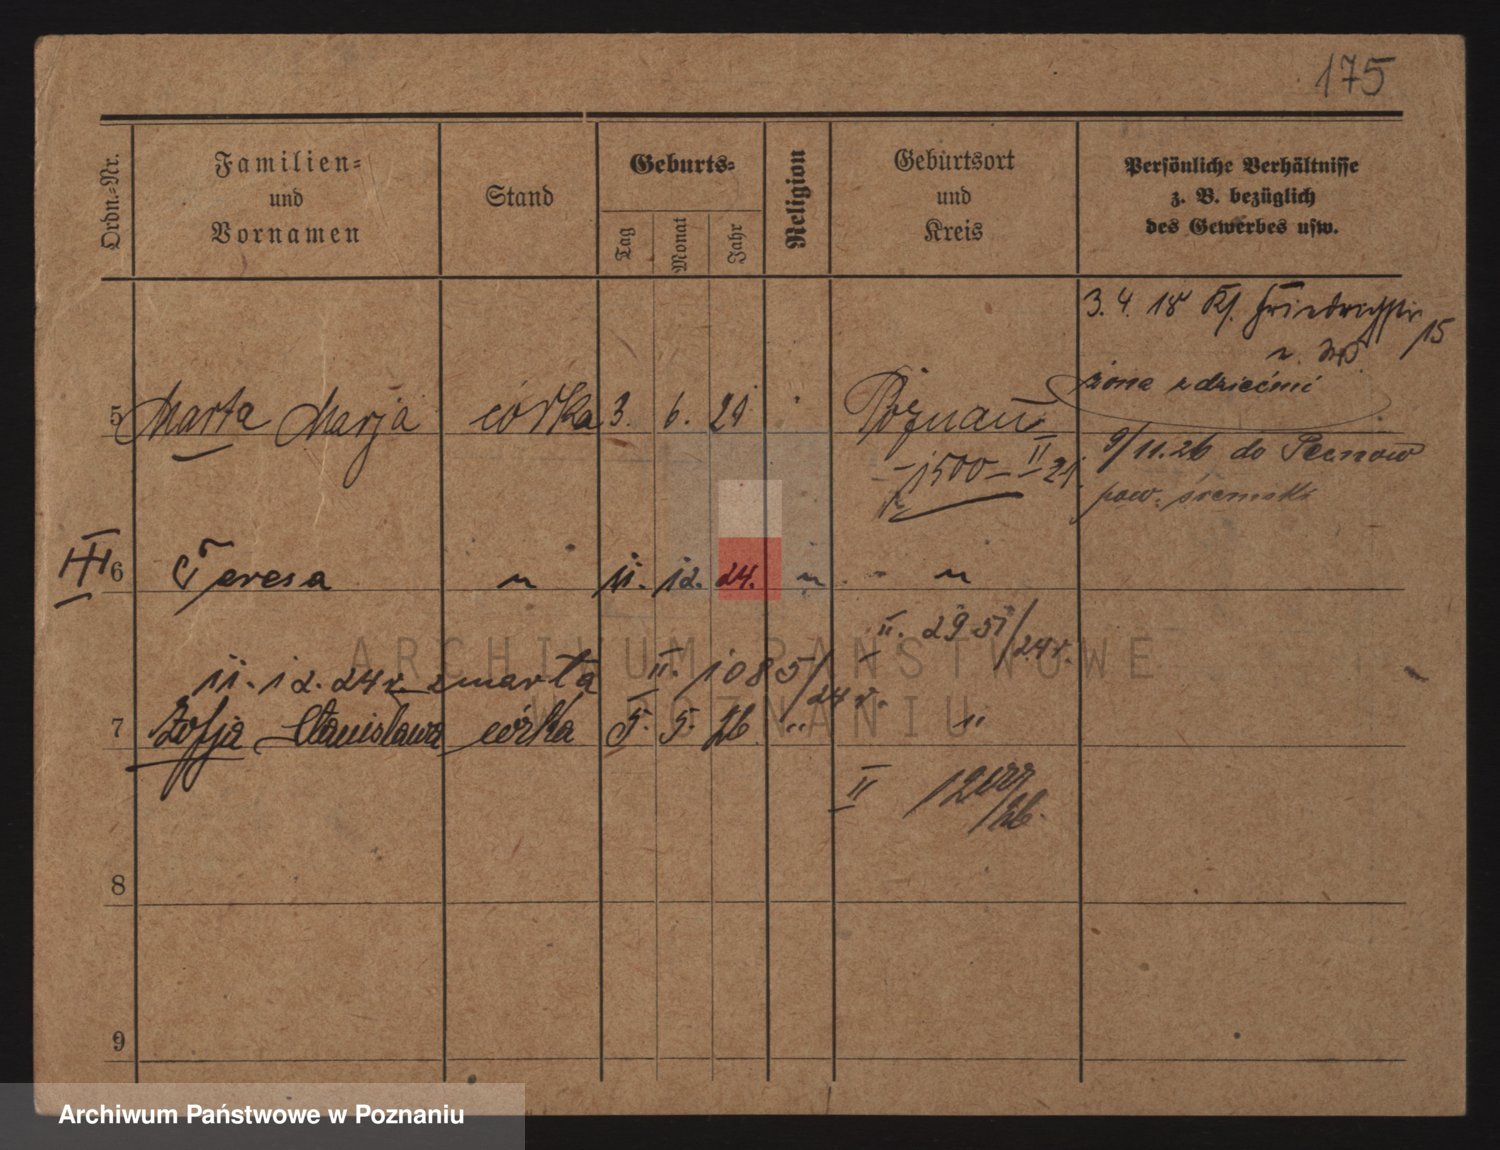 175
Ordn.-Nr.
Familien-
und
Vornamen
Stand
Geburts-
Tag
Monat
Jahr
Religion
Geburtsort
und
Kreis
Persönliche Verhältnisse
z. B. bezüglich
des Gewerbes usw.
3. 4. 18 Kl. Friedrichstr.
15
żona z dziećmi
5 Marta Marja córka 3. 6. 21 Poznań
1500 II 21.
9/11. 26 do
pow. śremski
III 6 Teresa " 11. 12. 24. " "
II. 2951/24 r.
11. 12. 24 r. zmarła II. 1085/24 r.
7 Zofja Stanisława córka 5. 5. 26 " "
II
/26.
8
9
ARCHIWUM PAŃSTWOWE
W POZNANIU
Archiwum Państwowe w Poznaniu